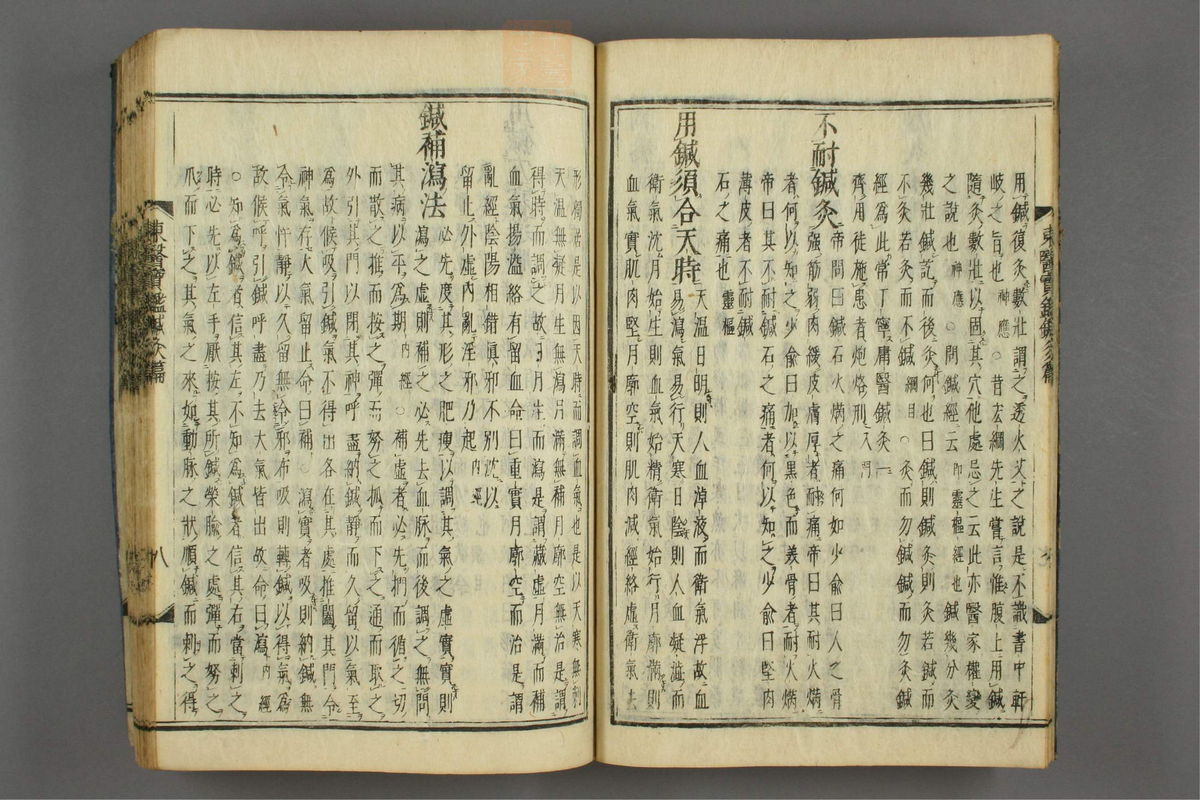 用鍼復灸數壯謂之透火艾之說是不識書中軒
岐之旨也 神應 ○昔玄綱先生嘗言惟腹上用鍼
隨灸數壯以固其穴他處忌之云此亦醫家權變
之說也 神應 ○問鍼經云 卽靈樞經也 鍼幾分灸
幾壯鍼訖而後灸何也曰鍼則鍼灸則灸若鍼而
不灸若灸而不鍼 綱目 ○灸而勿鍼鍼而勿灸鍼
經爲此常丁寧庸醫鍼灸一
齊用徒施患者炮烙刑 入門
不耐鍼灸 帝問曰鍼石火焫之痛何如少兪曰人之骨
強筋弱肉緩皮膚厚者耐痛帝曰其耐火焫
者何以知之少兪曰加以黑色而美骨者耐火焫
帝曰其不耐鍼石之痛者何以知之少兪曰堅肉
薄皮者不耐鍼
石之痛也 靈樞
用鍼須合天時 天溫日明則人血淖液而衛氣浮故血
易瀉氣易行天寒日陰則人血凝澁而
衛氣沈月始生則血氣始精衛氣始行月廓滿則
血氣實肌肉堅月廓空則肌肉減經絡虛衛氣去
形獨居是以因天時而調血氣也是以天寒無刺
天溫無凝月生無瀉月滿無補月廓空無治是謂
得時而調之故曰月生而瀉是謂藏虛月滿而補
血氣揚溢絡有留血命曰重實月廓空而治是謂
亂經陰陽相錯眞邪不別沈以
留止外虛內亂淫邪乃起 內經
鍼補瀉法 必先度其形之肥瘦以調其氣之虛實實則
瀉之虛則補之必先去血脉而後調之無問
其病以平爲期 內經 ○補虛者必先捫而循之切
而散之推而按之彈而努之抓而下之通而取之
外引其門以閉其神呼盡納鍼靜而久留以氣至
爲故候吸引鍼氣不得出各在其處推闔其門令
神氣存大氣留止命曰補○瀉實者吸則納鍼無
令氣忤靜以久留無令邪布吸則轉鍼以得氣爲
故候呼引鍼呼盡乃去大氣皆出故命曰瀉 內經
○知爲鍼者信其左不知爲鍼者信其右當刺之
時必先以左手厭按其所鍼榮腧之處彈而努之
爪而下之其氣之來如動脉之狀順鍼而刺之得
東醫寶鑑鍼灸篇
八
東醫寶鑑鍼灸篇